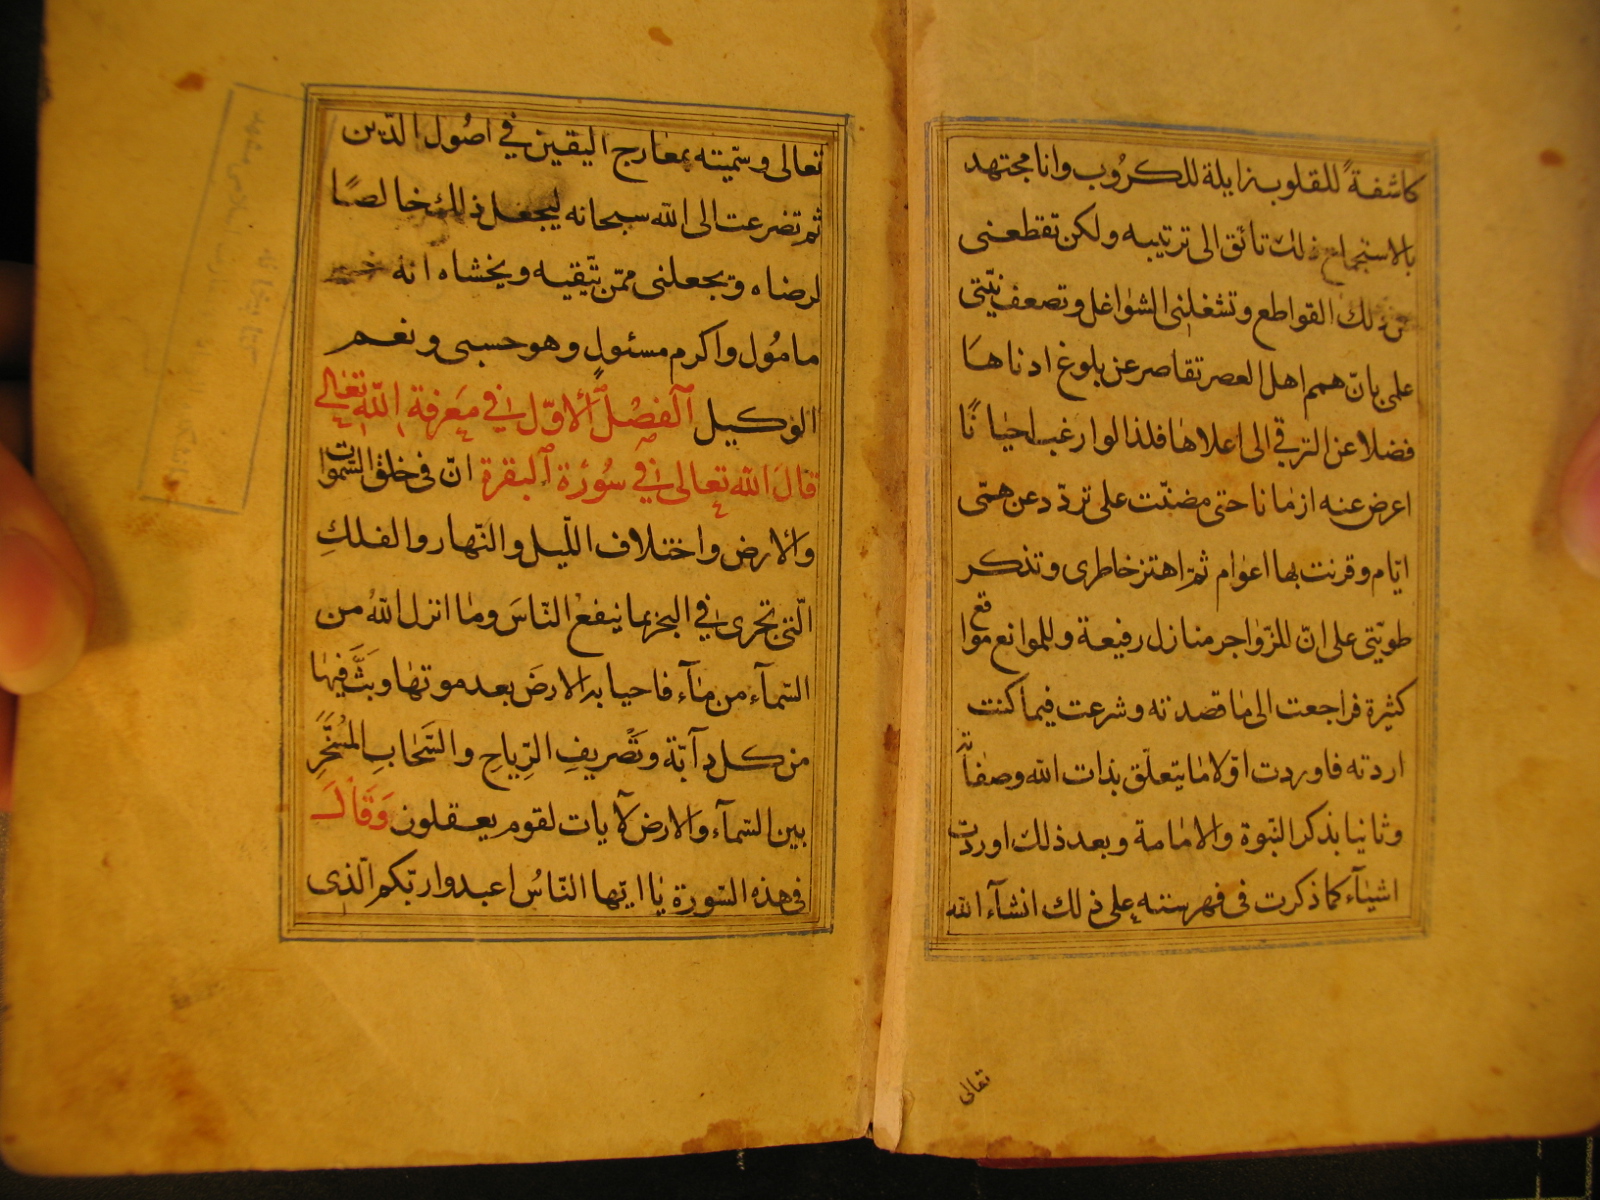 كاشفةً للقلوب زايلة للكرُوب وانا مجتهد
بالاستجماع ذلك تائق الى ترتيبه ولكن تقطعنى
عن ذلك القواطع وتشغلنى الشواغل وتضعف نيّتى
على بانّ همم اهل العصر تقاصر عن بلوغ ادناها
فضلا عن الترقى الى اعلاها فلذا لو ارغب احيانًا
اعرض عنه ازمانا حتى مضت على تردّد عن همّتى
ايّام وقرنت بها اعوام ثمّ اهتز خاطرى وتذكر
طويّتى على انّ للزّواجر منازل رفيعة وللموانع مواقع
كثيرة فراجعت الى ما قصدته وشرعت فيما كنت
اردته فاوردت اوّلا ما يتعلّق بذات الله وصفاته
وثانيا بذكر النبّوة والامامة وبعد ذلك اوردت
اشيآء كما ذكرت فى فهرسته على ذلك انشآء الله
تعالى
تعالى وسمّيته بمعارج اليقين في اصُول الدّين
ثم تضرعت الى الله سبحانه ليجعل ذلك خالصًا
لرضاه ويجعلنى ممّن يتّقيه ويخشاه انه خير
مامُول واكرم مسئولٍ وهو حسبى ونعم
الوكيل الفصْل الاوّل في مَعرفة الله تعالى
قالَ الله تعالى في سُورَة البقرة انّ فى خلق السّموات
والارض واختلاف اللّيل والنّهار والفلكِ
الّتى تجرى في البحر بما ينفعُ النّاسَ وما انزل اللهُ من
السّمآء من مآء فاحيا به الارضَ بعد موتها وبَثَّ فيها
من كل دآبّة وتَصْريفِ الرِّياحِ والسَّحابِ المُسَخَّرِ
بين السّمآء والارض لآيات لقوم يعقلون وَقالَ
فى هذه السّورة يا ايّها النّاسُ اعبدوا ربّكم الّذى